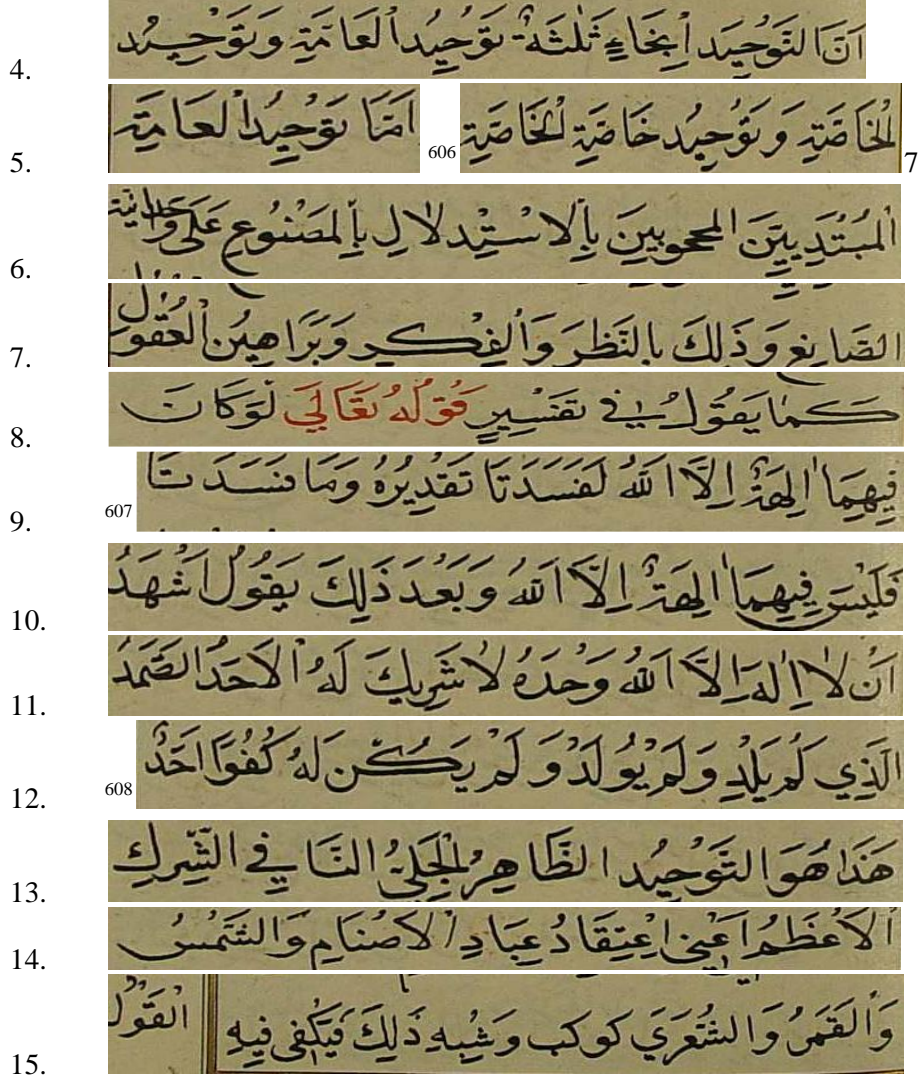 4. اَنَّ التَوْحِيدَ اَنْحَاءٍ ثَلٰثَةٌ تَوْحِيدُ العَامَّةِ وَتَوْحِيدُ
5. الْخَاصَّةِ وَ تَوْحِيدُ خَاصَّةِ الْخَاصَّةِ 606 اَمَّا تَوْحِيدُ العَامَّةِ 7
6. المُبْتَدِيِيّنَ المحجوبِينَ بِالاسْتِدْلالِ بِالمَصْنُوعِ عَلَى وَحْدَانِيَّة
7. الصَّانِعِ وَ ذَلِكَ بِالنَّظَرِ وَالْفِكْرِ وَبَرَاهِينُ العُقُولِ
8. كَمَا يَقُولُ فِي تَفْسِيرِ قَوْلُهُ تَعَالَي لَوْ كَانَ
9. فِيهِمَا اٰلِهَةٌ اِلَّا اللّٰهُ لَفَسَدَتَا تَقْدِيرُهُ وَمَا فَسَدَتَا 607
10. فَلَيْسَ فِيهِمَا اٰلِهَةٌ اِلَّا اللّٰهُ وَبَعْدَ ذَلِكَ يَقُولُ اَشْهَدُ
11. اَنْ لا اِلٰهَ اِلَّا اللّٰهُ وَحْدَهُ لا شَرِيكَ لَهُ الاَحَدُ الصَّمَدُ
12. الَّذِي لَمْ يَلِدْ وَلَمْ يُولَدْ وَ لَمْ يَكُنْ لَهُ كُفُوًا اَحَدٌ 608
13. هَذَا هُوَ التَوْحِيدُ الظَّاهِرُ الْجَلِيُّ النَّافِي الشِّرك
14. الاَعْظَمُ اَعْنِي اِعْتِقَادُ عِبَادِ الاَصْنَامِ وَالشَّمْسُ
15. وَالقَمَرُ وَالشُّعْرَي كوكب وَ شِبْهِ ذَلِكَ فَيَكْفِي فِيهِ القَوْلُ